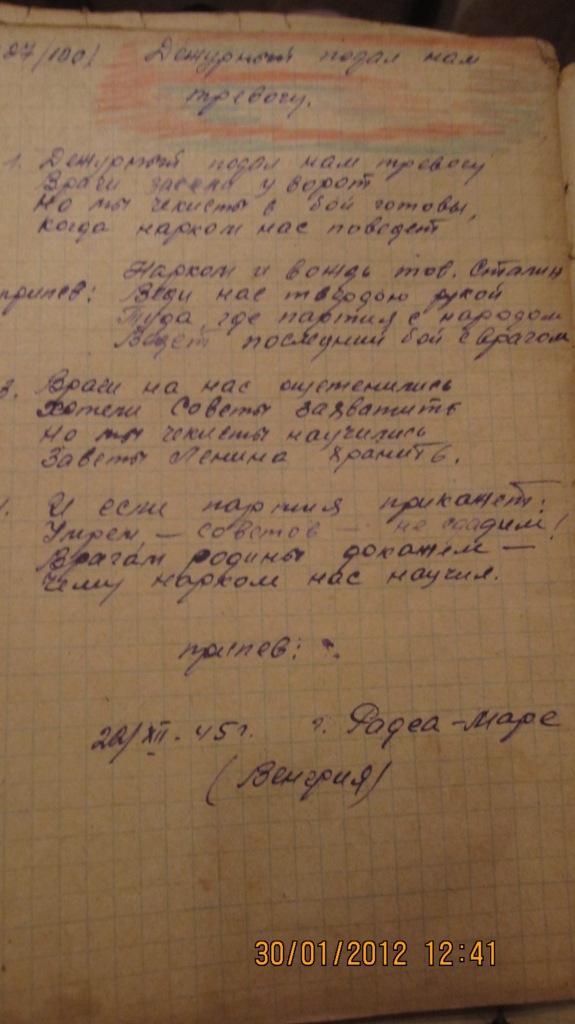 27/100/ Дежурный подал нам
тревогу.
1. Дежурный подал нам тревогу
Враги засели у ворот
Но мы чекисты в бой готовы,
Когда нарком нас поведет
Нарком и вождь тов. Сталин
припев: Веди нас твердою рукой
Туда, где партия с народом
Ведет последний бой с врагом
3. Враги на нас ощетенились
Хотели Советы захватить
Но мы чекисты научились
Заветы Ленина хранить.
И если партия прикажет:
Умрем, — советов — не сдадим!
Врагам родины докажем —
Чему нарком нас научил.
припев:
/XII - 45 г. г. Радеа-Маре
(Венгрия)
30/01/2012 12:41